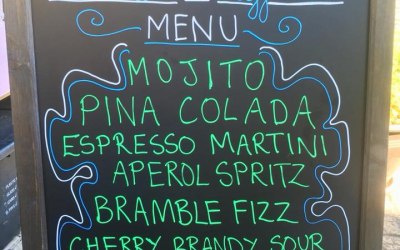 MENU
MOJITO
PINA COLADA
ESPRESSO MARTINI
APEROL SPRITZ
BRAMBLE FIZZ
CHERRY BRANDY SOUR